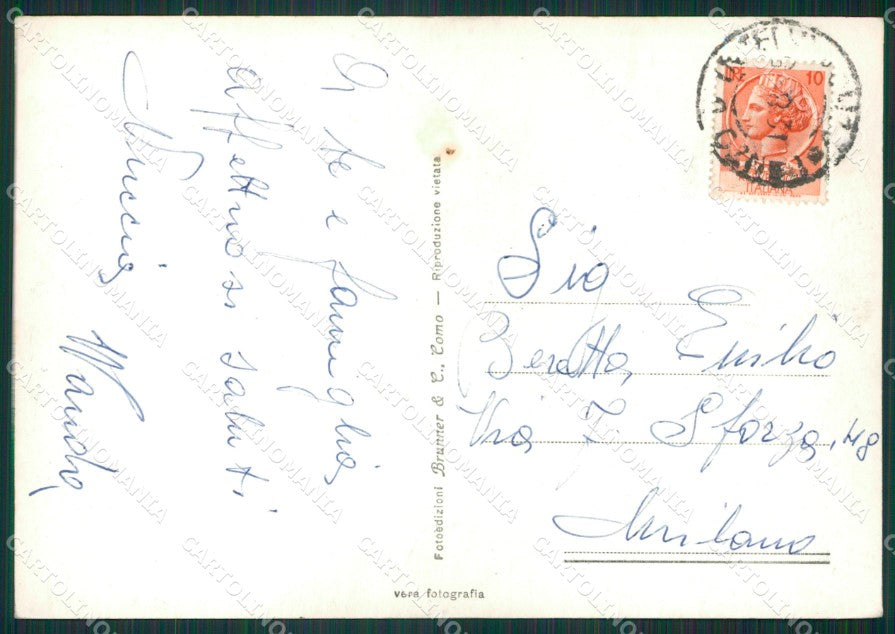 A te e famiglia
affettuosi saluti
Nuccia Wanda
Fotoedizioni Brunner & C., Como — Riproduzione vietata
vera fotografia
10
ITALIANA
Sig
Beretta Emilio
Via F. Sforza, 48
Milano
CARTOLINOMANIA